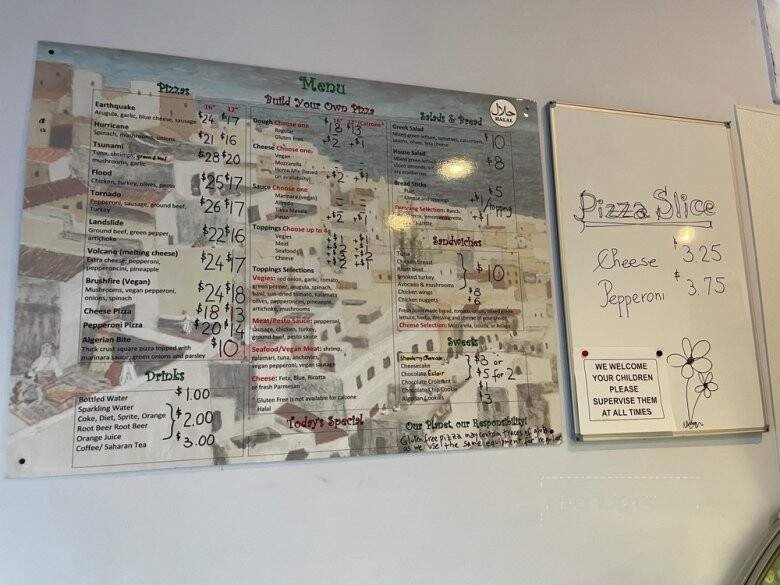 Menu
Pizzas
16" 12"
Earthquake
Arugula, garlic, blue cheese, sausage $24 $17
Hurricane
Spinach, mushrooms, onions $21 $16
Tsunami
Tuna, shrimps, ground beef,
mushrooms, garlic $28 $20
Flood
Chicken, turkey, olives, pesto $25 $17
Tornado
Pepperoni, sausage, ground beef,
Turkey $26 $17
Landslide
Ground beef, green pepper,
artichoke $22 $16
Volcano (melting cheese)
Extra cheese, pepperoni,
pepperoncini, pineapple $24 $17
Brushfire (Vegan)
Mushrooms, vegan pepperoni,
onions, spinach $24 $18
Cheese Pizza $18 $13
Pepperoni Pizza $20 $14
Algerian Bite
Thick crust square pizza topped with
marinara sauce, green onions and parsley $10
Drinks
Bottled Water $1.00
Sparkling Water
Coke, Diet, Sprite, Orange
Root Beer Root Beer $2.00
Orange Juice
Coffee/ Saharan Tea $3.00
Build Your Own Pizza
Dough Choose one 16" 12"/Calzone*
Regular $18 $13
Gluten Free +$2 +$1
Cheese Choose one
Vegan
Mozzarella
Home Mix (Based
on availability) +$2 +$1
Sauce Choose one
Marinara (vegan)
Alfredo
Tikka Masala
Pesto +$2 +$1
Toppings Choose up to 4
Vegies
Meat
Seafood
Cheese
Toppings Selections
Vegies: red onion, garlic, tomato,
green pepper, arugula, spinach,
basil, sun-dried tomato, kalamata
olives, pepperoncini, pineapple,
artichoke, mushrooms
Meat/Pesto Sauce: pepperoni,
sausage, chicken, turkey,
ground beef, pesto sauce
Seafood/Vegan Meat: shrimp,
calamari, tuna, anchovies,
vegan pepperoni, vegan sausage
Cheese: Feta, Blue, Ricotta
or fresh Parmesan
* Gluten Free is not available for calzone
Halal
Today's Special
Salads & Bread
حلال
HALAL
Greek Salad
Mixed green lettuce, tomatoes, cucumbers,
onions, olives, feta cheese $10
House Salad
Mixed green lettuce
$8
Bread Sticks
Plain $5
Cheese and toppings +$1/topping
Dressing Selection: Ranch,
+$1
Sandwiches
Tuna
Chicken breast
Roast beef
Smoked turkey
Avocado & mushrooms $10
Chicken wings $8
Chicken nuggets $6
Cheese Selection: Mozzarella,
Sweets
Strawberry Cheesecake
Cheesecake
Chocolate Eclair $3 or
Chocolate Croissant $5 for 2
Chocolate Chip Cookie $1
Algerian Cookies $3
Our Planet, our Responsibility!
Gluten free pizza may contain traces of gluten
as we use the same equipment for regular
Pizza Slice
Cheese $3.25
Pepperoni $3.75
WE WELCOME
YOUR CHILDREN
PLEASE
SUPERVISE THEM
AT ALL TIMES